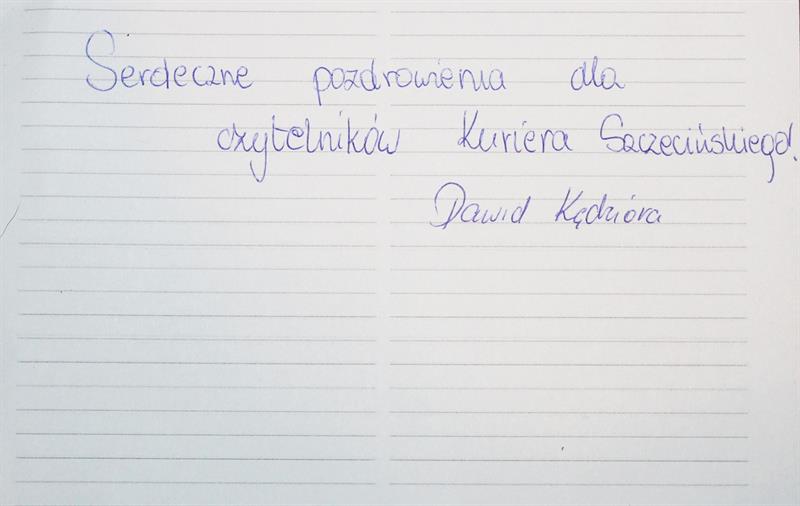 Serdeczne pozdrowienia dla
czytelników Kuriera Szczecińskiego!
Dawid Kędzióra